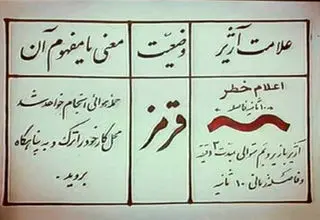 علامت آژیر
وضعیت
معنی یا مفهوم آن
اعلام خطر
۱۰۰ ثانیه فاصله
آژیر با زیر و بم متوالی بمدت ۳ دقیقه
و فاصله زمانی ۱۰ ثانیه
قرمز
حمله هوائی انجام خواهد شد
محل کار خود را ترک و به پناهگاه
بروید.